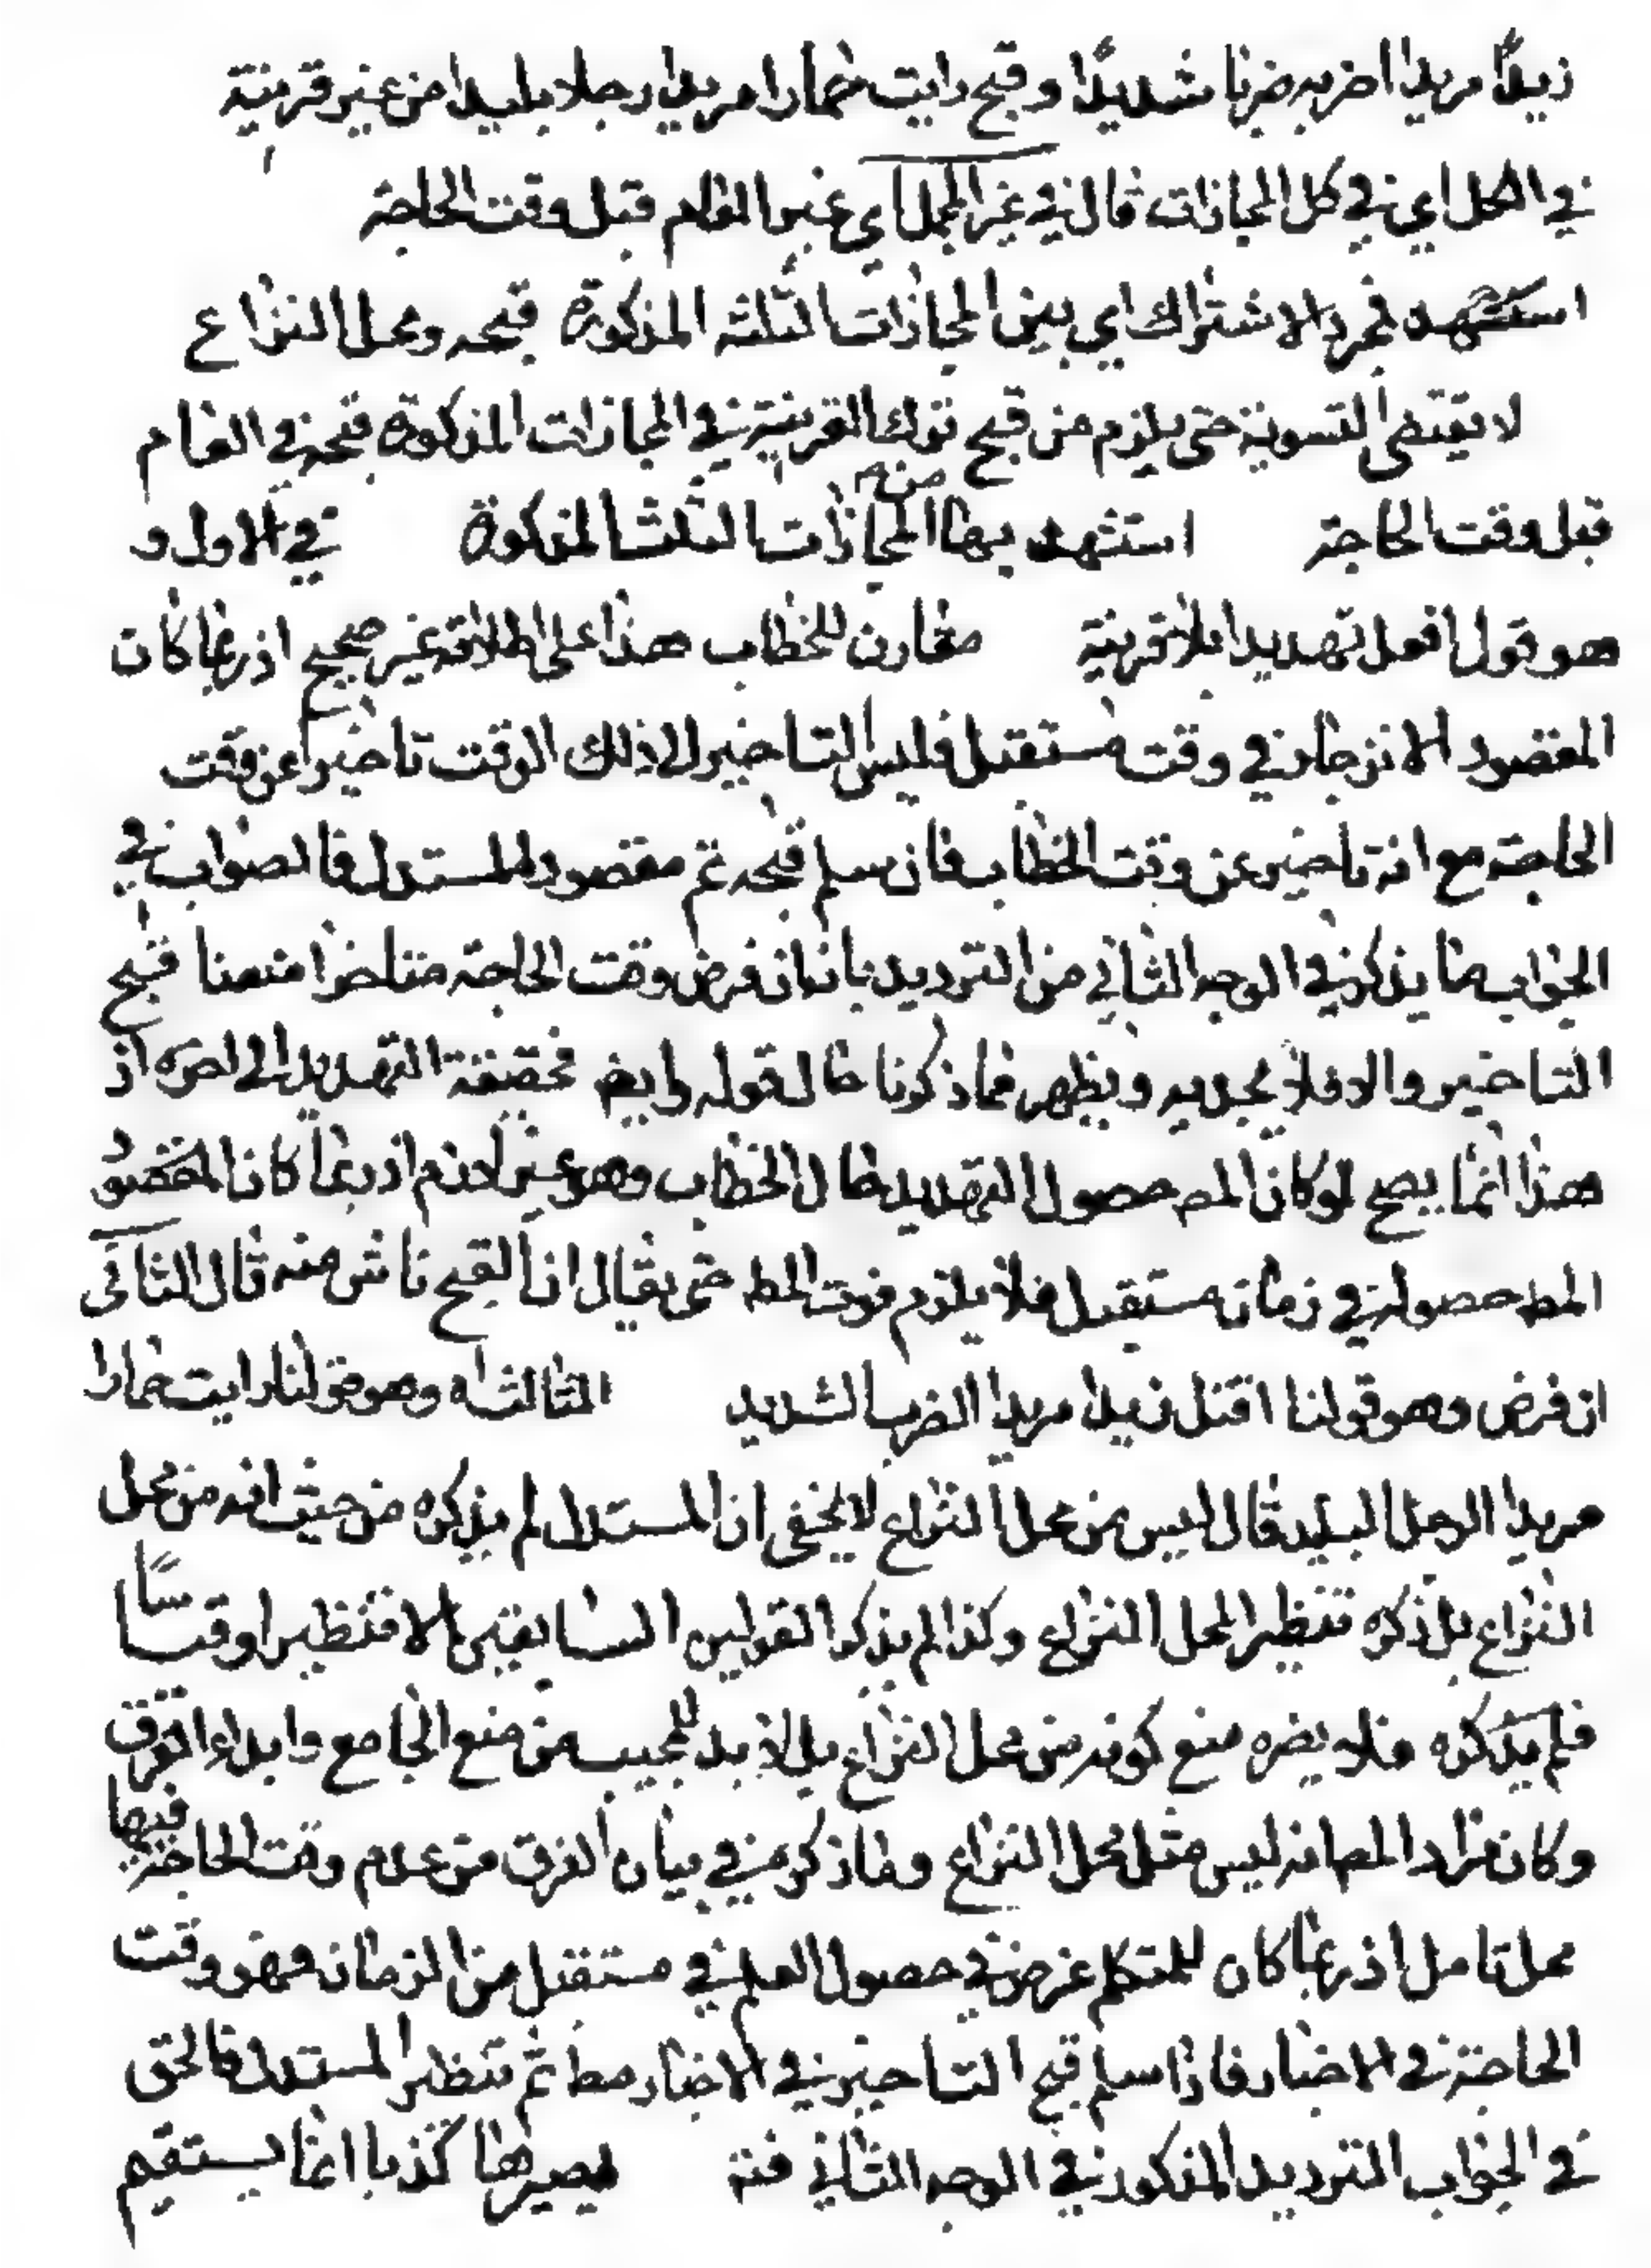 زيداً مريدا اضربه ضربا شديدًا وقبح رايت حمارا مريدا رجلا بليدا من غير قرينة
في الكل اي في كل المجازات قال في غير المجمل اي غير العام قبل وقت الحاجة
استشهد فمجرد الاشتراك اي بين المجازات الثلثه المذكورة قبحه ومحل النزاع
لا يقتضى التسوية حتى يلزم من قبح ترك القرينة في المجازات المذكورة قبحه في العام
قبل وقت الحاجة استشهد بها المجازات الثلث المذكورة منه في الاول و
هو قول افعل تهديدا بلا قرينة مقارن للخطاب هذا على اطلاقه غير صحيح اذ ربما كان
المقصود الانزجار في وقت مستقبل فليس التاخير لذلك الوقت تاخيرا عن وقت
الحاجة مع انه تاخير عن وقت الخطاب فان سلم قبحه تم مقصود المستدل فالصواب في
الجواب ما يذكر في الوجه الثاني من الترديد بانه ان فرض وقت الحاجة متاخرا منعنا قبح
التاخير والا فلا يجديه ويظهر مما ذكرنا حال قوله وايض فحقيقة التهديد الى اخره اذ
هذا انما يصح لو كان المط حصول التهديد حال الخطاب وهو غير لازم اذ ربما كان المقصود
المط حصوله في زمان مستقبل فلا يلزم فوت المط حتى يقال ان القبح ناش منه قال الثانى
ان فرض وهو قولنا اقتل زيدا مريدا الضرب الشديد الثالث اه وهو قولنا رايت حمارا
مريدا الرجل البليد قال ليس من محل النزاع لا يخفى ان المستدل لم يذكره من حيث انه من محل
النزاع بل ذكره تنظيرا لمحل النزاع وكذا لم يذكر القولين السابقين الا تنظيرا وقياسًا
فلم يذكره فلا يضره منع كونه من محل النزاع بل لا بد للمجيب من منع الجامع وابداء الفرق
وكان مراد المص انه ليس مثل محل النزاع وما ذكره في بيان الفرق من عدم وقت الحاجة فيها
محل تامل اذ ربما كان للمتكلم غرض في حصول العلم في مستقبل من الزمان فهو وقت
الحاجة في الاخبار فاذا سلم قبح التاخير في الاخبار مط تم تنظير المستدل فالحق
في الجواب الترديد المذكور في الوجه الثاني فتد يصيرها كذبا انما يستقيم